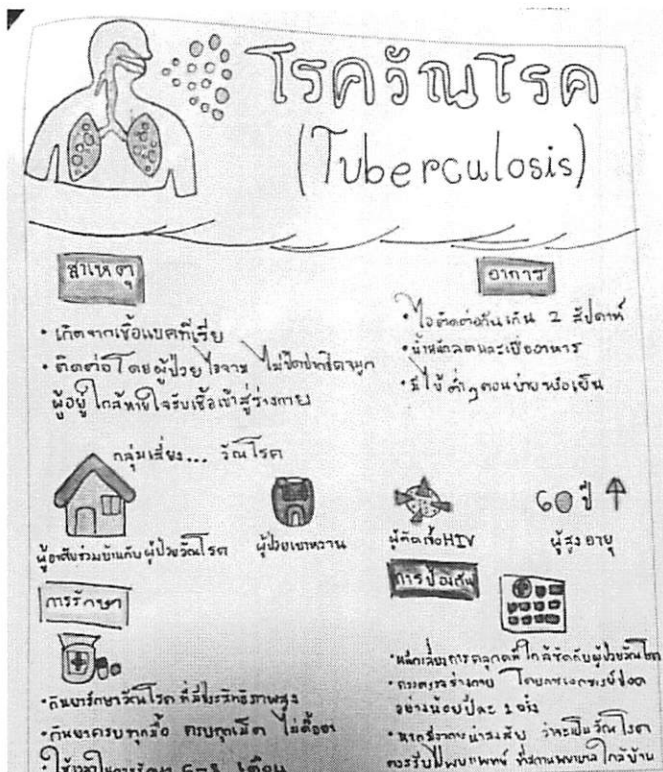 โรควัณโรค
(Tuberculosis)
สาเหตุ
• เกิดจากเชื้อแบคทีเรีย
• ติดต่อโดยผู้ป่วยไอจาม ไม่ปิดปากปิดจมูก
ผู้อยู่ใกล้หายใจรับเชื้อเข้าสู่ร่างกาย
อาการ
• ไอติดต่อกันเกิน 2 สัปดาห์
• น้ำหนักลดและเบื่ออาหาร
• มีไข้ต่ำๆตอนบ่ายหรือเย็น
กลุ่มเสี่ยง... วัณโรค
ผู้อาศัยร่วมบ้านกับผู้ป่วยวัณโรค
ผู้ป่วยเบาหวาน
ผู้ติดเชื้อHIV
60 ปี ↑
ผู้สูงอายุ
การรักษา
• กินยารักษาวัณโรคที่มีประสิทธิภาพสูง
• กินยาครบทุกมื้อ ครบทุกเม็ด ไม่ดื้อยา
• ใช้เวลาในการรักษา 6-8 เดือน
การป้องกัน
• หลีกเลี่ยงการคลุกคลีใกล้ชิดกับผู้ป่วยวัณโรค
• ตรวจร่างกาย โดยการเอกซเรย์ปอด
อย่างน้อยปีละ 1 ครั้ง
• หากมีอาการน่าสงสัย ว่าจะเป็นวัณโรค
ควรรีบไปพบแพทย์ ที่สถานพยาบาลใกล้บ้าน